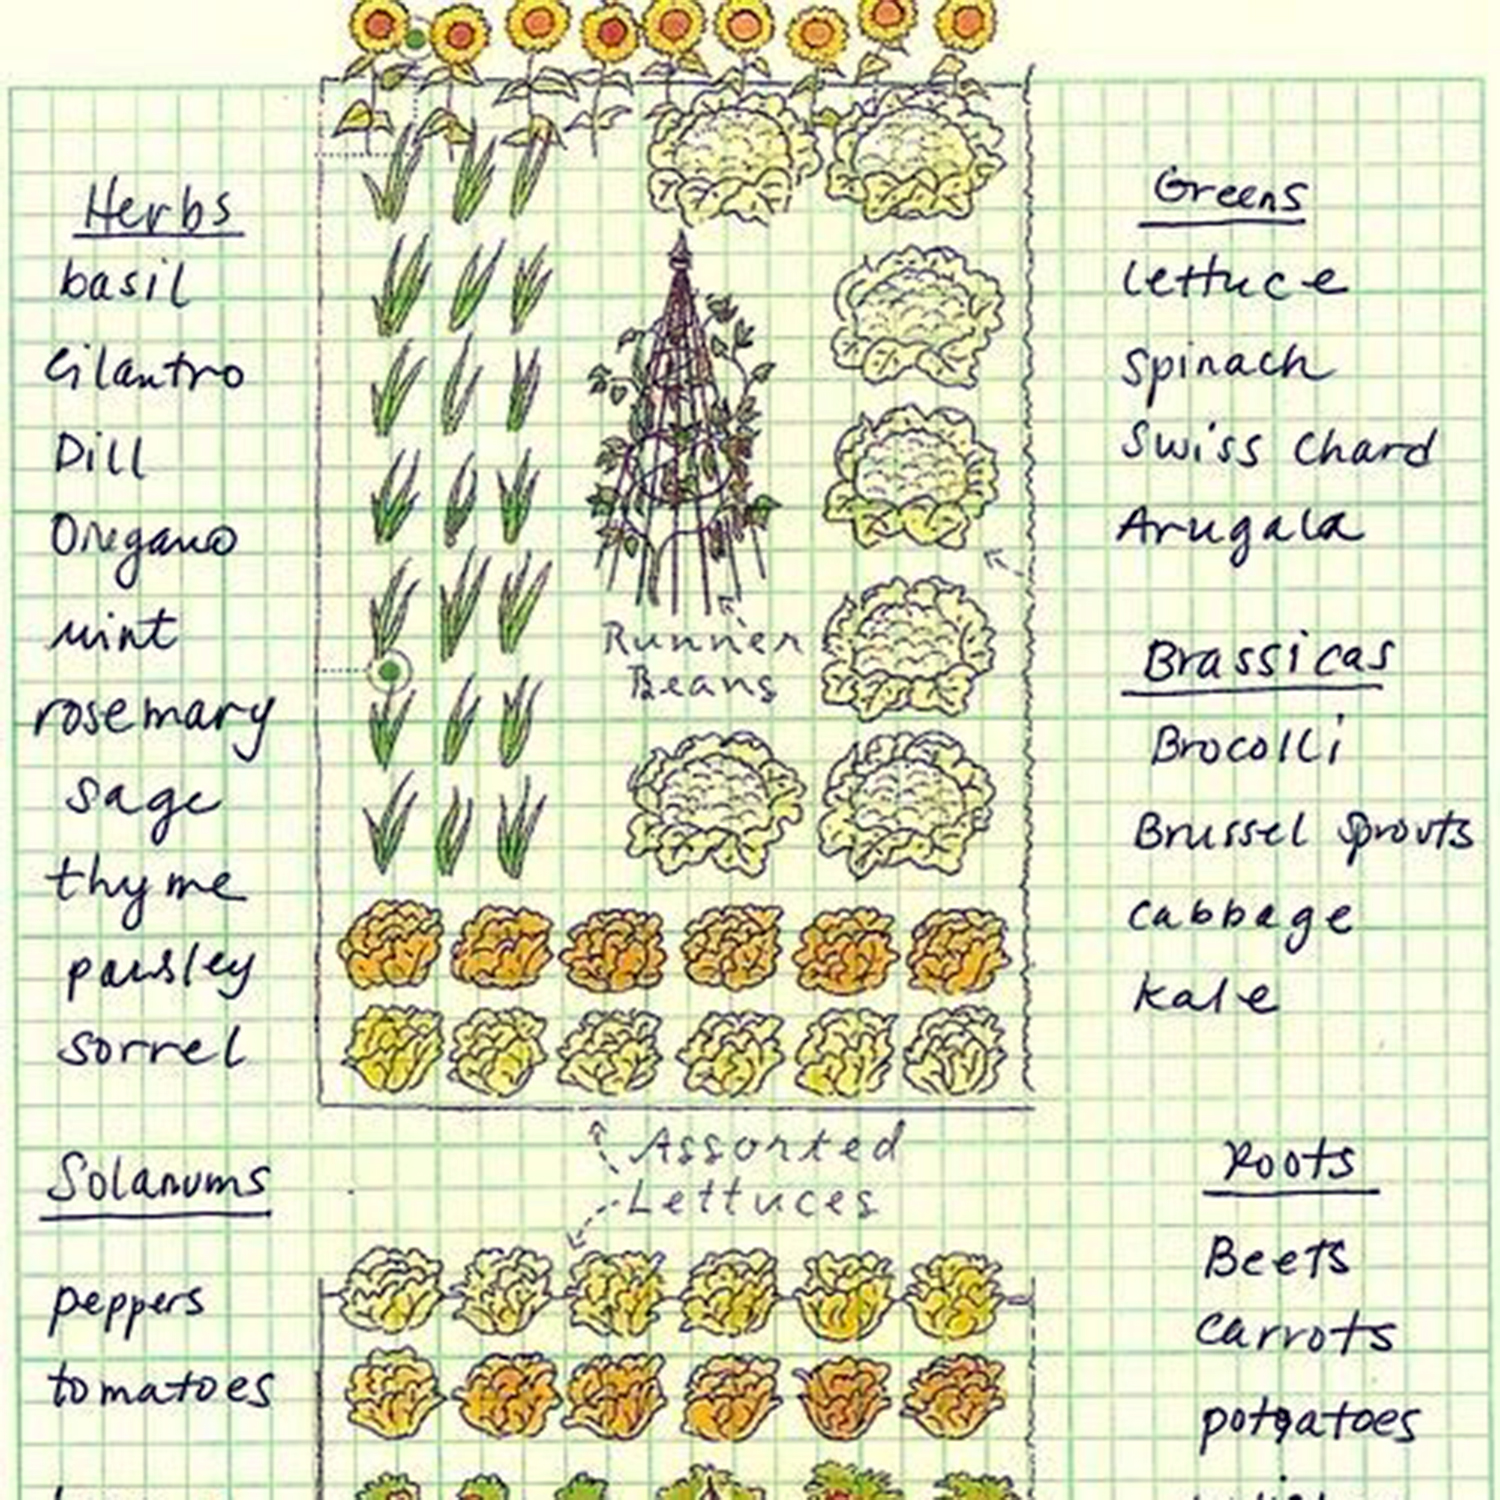 Herbs
basil
Cilantro
Dill
Oregano
mint
rosemary
sage
thyme
parsley
sorrel
Solanums
peppers
tomatoes
Runner
Beans
Assorted
Lettuces
Greens
Lettuce
Spinach
Swiss Chard
Arugala
Brassicas
Brocolli
Brussel Sprouts
Cabbage
Kale
Roots
Beets
Carrots
potatoes